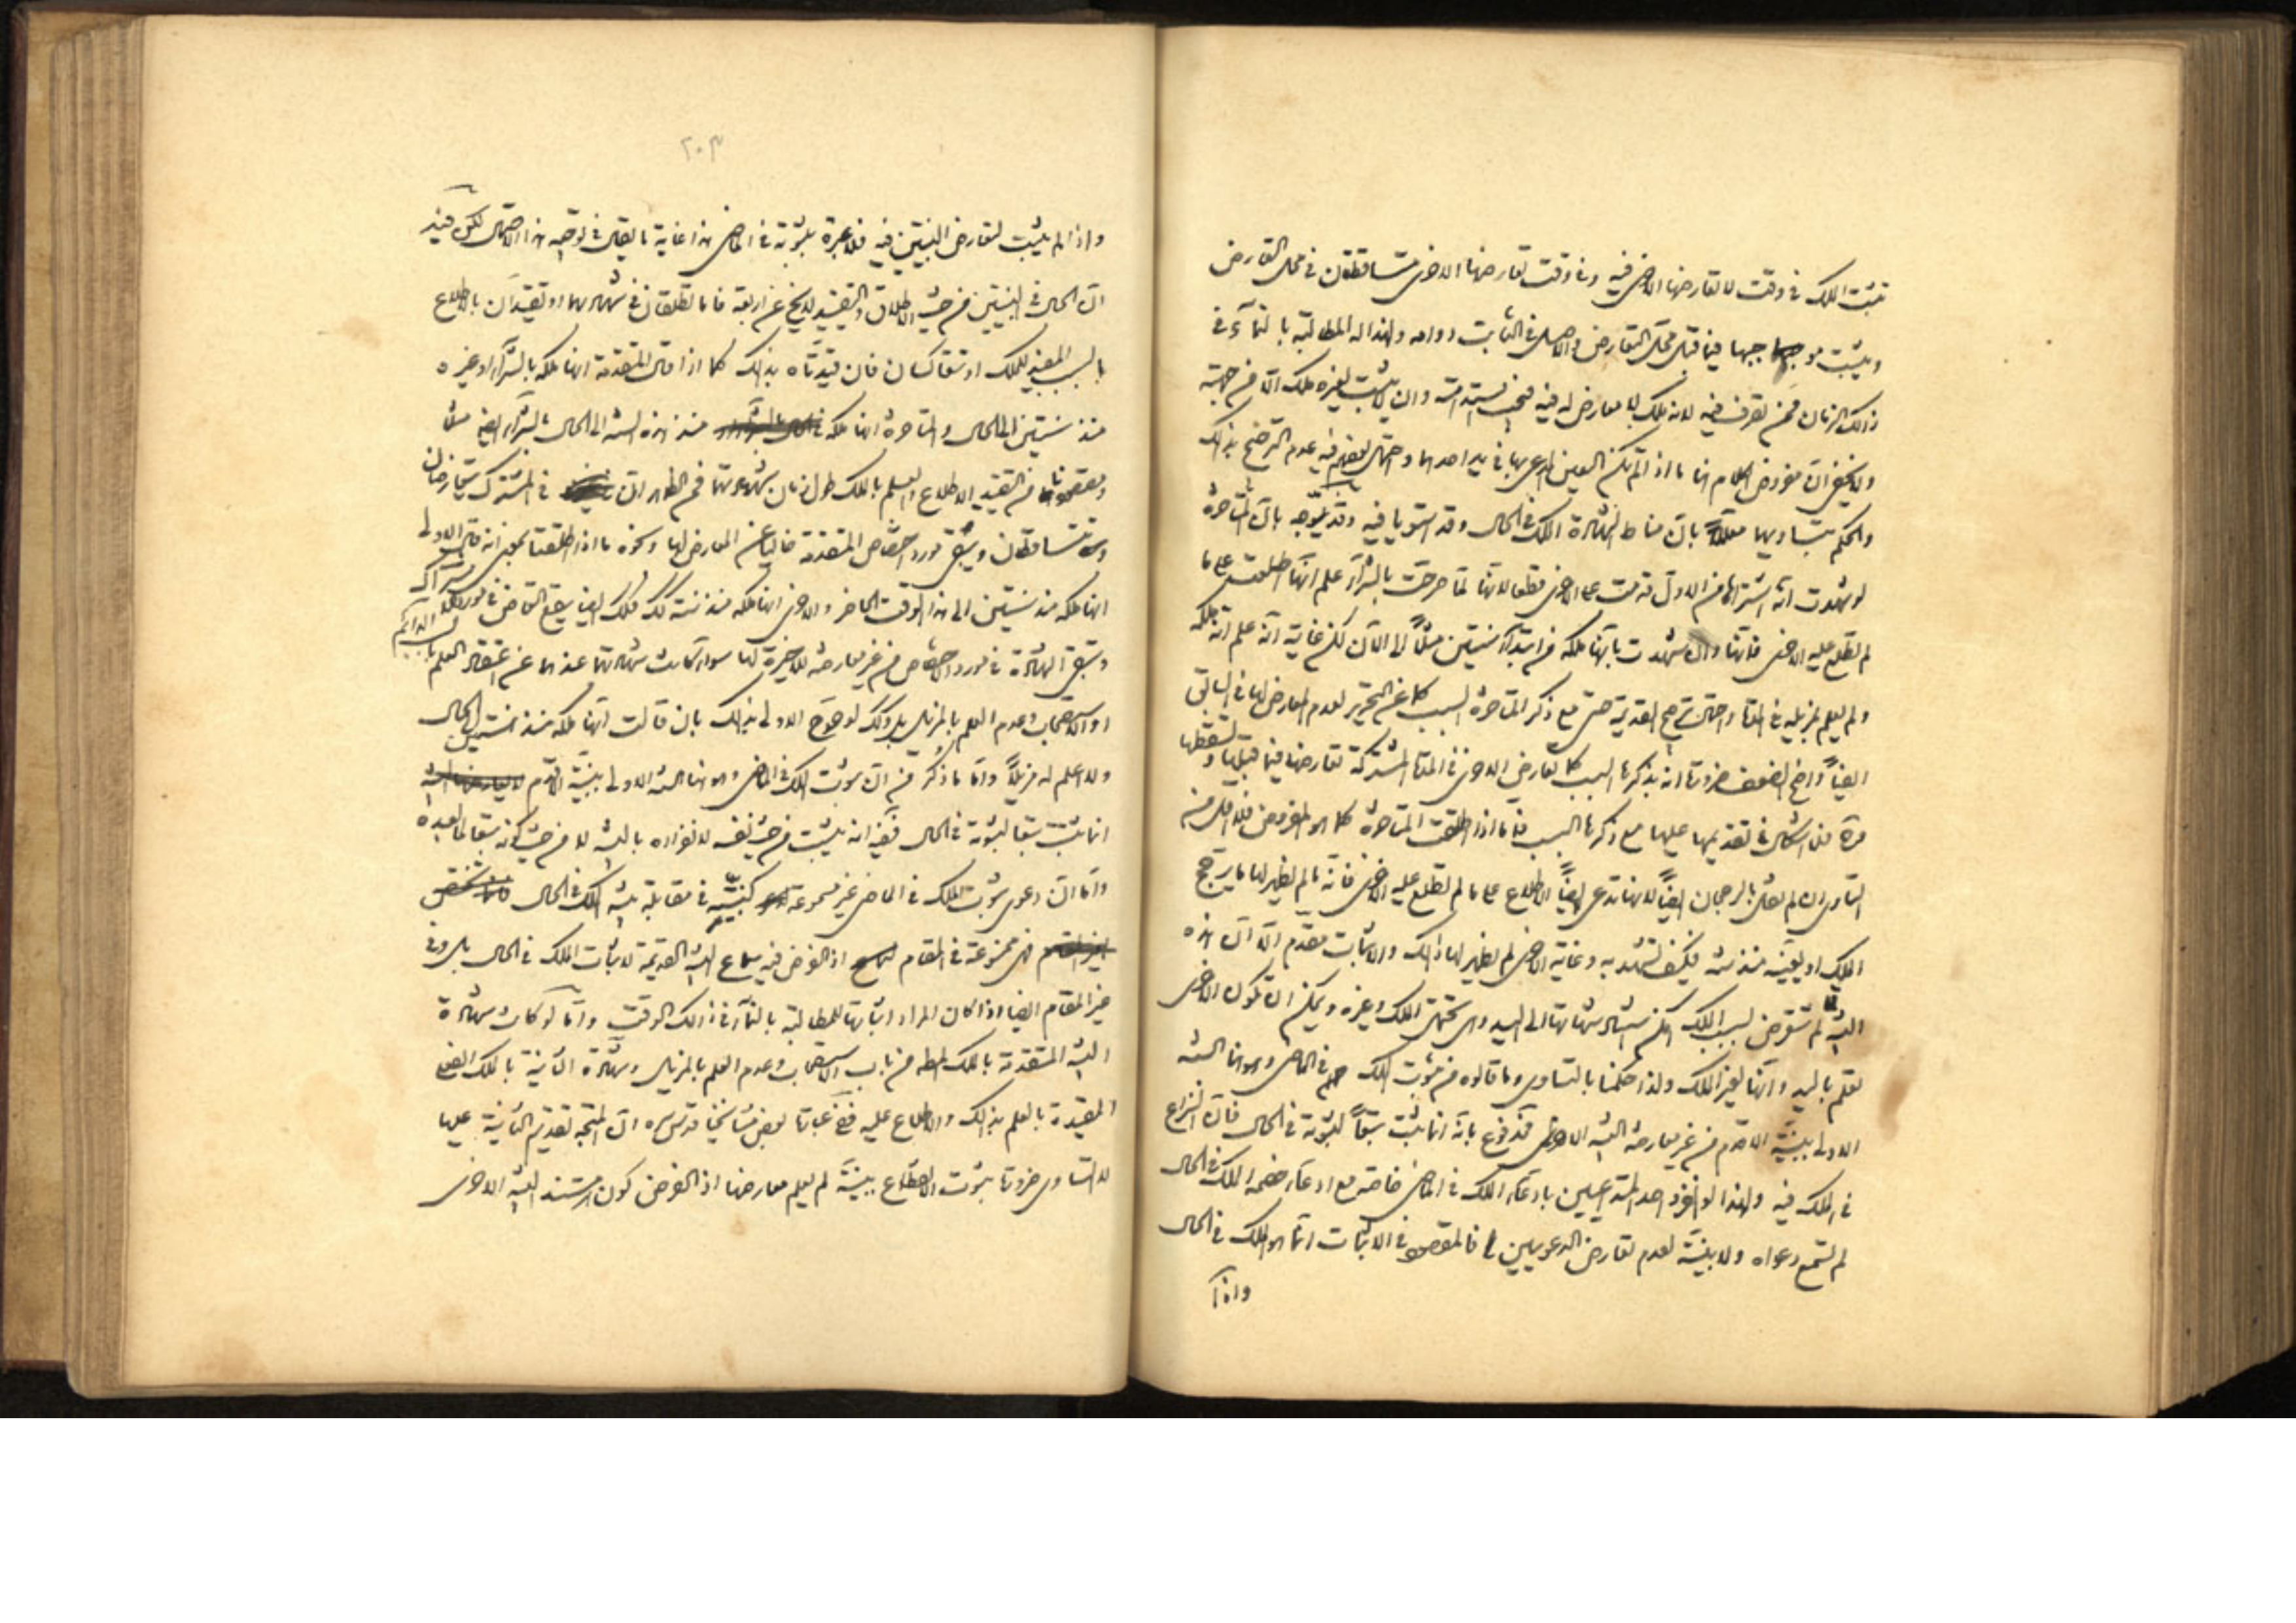 تثبت الملك في وقت لا تعارضها الاخرى فيه وفي وقت تعارضها الاخرى تتساقطان في محل التعارض
ويثبت موجبها فيما قبل محل التعارض والاصل في الثابت دوامه ولهذا له المطالبة بالنماء في
ذلك الزمان فمن تصرف فيه لانه ملك لا معارض له فيه فيجب استدامته وان لا يثبت لغيره ملك الا من جهته
ولا يخفى ان مفروض الكلام انما ما اذا لم تكن العين المدعى بها في يد احدهما واحتمال بعضهم فيه عدم الترجيح بذلك
والحكم بتساويهما معللا بان مناط الشهادة الملك في الحال وقد استويا فيه وقد يتوجه بان المتاخرة
لو شهدت انه اشتراها من الاول قدمت على الاخرى قطعا لانها لما صرحت بالشراء علم انها اطلعت على ما
لم تطلع عليه الاخرى فانها وان شهدت بانها ملكه من ابتداء سنتين مثلا الى الان لكن غايته انه علم انه ملكه
ولم يعلم بمزيله في المقام واحتمال ترجيح القديمة حتى مع ذكر المتاخرة السبب كما عن التحرير لعدم المعارض لها في السابق
ايضا واضح الضعف ضرورة انه بذكرها السبب كما تعارض الاخرى في المدة المشتركة تعارضها فيما قبلها وتسقطها
مرة فلا اشكال في تقديمها عليها مع ذكرها السبب فاما اذا اطلقت المتاخرة كما هو المفروض فلا اقل من
التساوي ان لم نقل بالرجحان ايضا لانها تدعى ايضا الاطلاع على ما لم تطلع عليه الاخرى فانه ما لم يظهر لها ما يرجح
الملك او يعينه منذ سنة فكيف تشهد به وغاية الاخرى لم يظهر لها ذلك والاثبات مقدم الا ان هذه
البينة لما لم تتعرض لسبب الملك امكن استناد شهادتها الى اليد وهي تحتمل الملك وغيره ويمكن ان تكون الاخرى
تعلم باليد وانها لغير الملك ولذا حكمنا بالتساوي وما قالوه من ثبوت الملك في الماضي وهو انما السنة
الاولى ببينة الاقدم من غير معارضة البينة الاخرى فمدفوع بانه انما يثبت تبعا لثبوته في الحال فان النزاع
في الملك فيه ولهذا لو انفرد احد المتداعيين بادعاء الملك في الماضي خاصة مع ادعاء خصمه الملك في الحال
لم تسمع دعواه ولا بينته لعدم تعارض الدعويين فالمقصود في الاثبات انما هو الملك في الحال
واذا
٢٠٣
واذا لم يثبت لتعارض البينتين فيه فلا عبرة بثبوته في الماضي هذا غاية ما يقال في توجيه هذا الاحتمال لكن فيه
ان الحال في البينتين من حيث الاطلاق والتقييد لا يخ عن اربعة فاما تطلقان في شهادتهما او تقيدان بالاطلاع
بالسبب المفيد للملك او تتعاكسان فان قيدتاه بذلك كما اذا قال المتقدمة انها ملكه بالشراء او غيره
منذ سنتين الى الحال والمتاخرة انها ملكه منذ هذه السنة الى الحال بالشراء ايضا مثلا
ومقصودنا من التقييد الاطلاع والعلم بالملك طول زمان شهادتهما فمن الظاهر ان في المشترك تتعارضان
وتتساقطان ويبقى مورد اختصاص المتقدمة خاليا عن المعارض لها ونحوه ما اذا اطلقتا بمعنى انه قالت الاولى
انها ملكه منذ سنتين الى هذا الوقت الحاضر والاخرى انها ملكه منذ سنة كذلك فكذلك ايضا يقع التعارض في مورد الاشتراك
وتبقى الشهادة في مورد الاختصاص من غير معارضة للاخيرة لها سواء كانت شهادتهما عندهما عن تحقق العلم بالسبب الدائم
او الاستصحاب وعدم العلم بالمزيل بل وكذلك لو صرح الاولى بذلك بان قالت انها ملكه منذ سنتين الى الحال
ولا اعلم له مزيلا واما ما ذكر من ان ثبوت الملك في الماضي وهو انما السنة الاولى ببينة الاقدم
انما يثبت تبعا لثبوته في الحال ففيه انه يثبت من حيث نفسه لانفراده بالبينة لا من حيث كونه تبعا لما بعده
واما ان دعوى ثبوت الملك في الماضي غير مسموعة كبينته في مقابلة بينة الملك في الحال
فهي ممنوعة في المقام اذ الفرض فيه سماع البينة القديمة لاثبات الملك في الحال بل وفي
غير المقام ايضا اذا كان المراد اثباتها للمطالبة بالنماء في ذلك الوقت واما لو كانت شهادة
البينة المتقدمة بالملك المط من باب الاستصحاب وعدم العلم بالمزيل وشهادة الثانية بالملك ايضا
المقيدة بالعلم بذلك والاطلاع عليه ففي عبارة بعض مشايخنا قدس سره ان المتجه تقديم الثانية عليها
لا التساوي ضرورة ثبوت الاطلاع ببينة لم يعلم معارضها اذ الفرض كون المستند البينة الاخرى